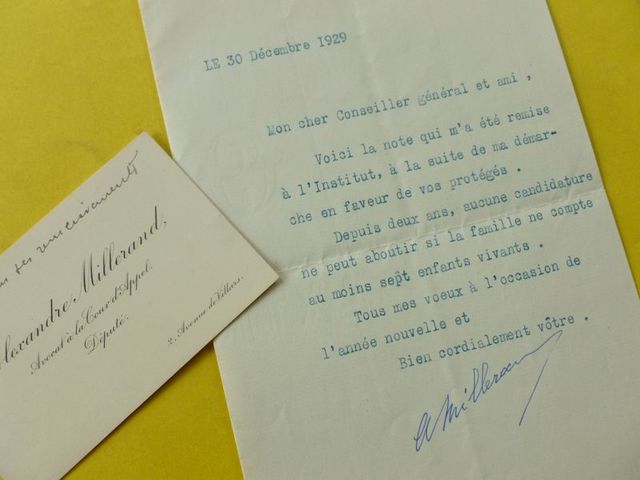 LE 30 Décembre 1929
Mon cher Conseiller général et ami ,
Voici la note qui m'a été remise
à l'Institut, à la suite de ma démar-
che en faveur de vos protégés .
Depuis deux ans, aucune candidature
ne peut aboutir si la famille ne compte
au moins sept enfants vivants .
Tous mes voeux à l'occasion de
l'année nouvelle et
Bien cordialement vôtre .
A Millerand
ses remerciements
Alexandre Millerand,
Avocat à la Cour d'Appel.
Député.
2. Avenue de Villars.